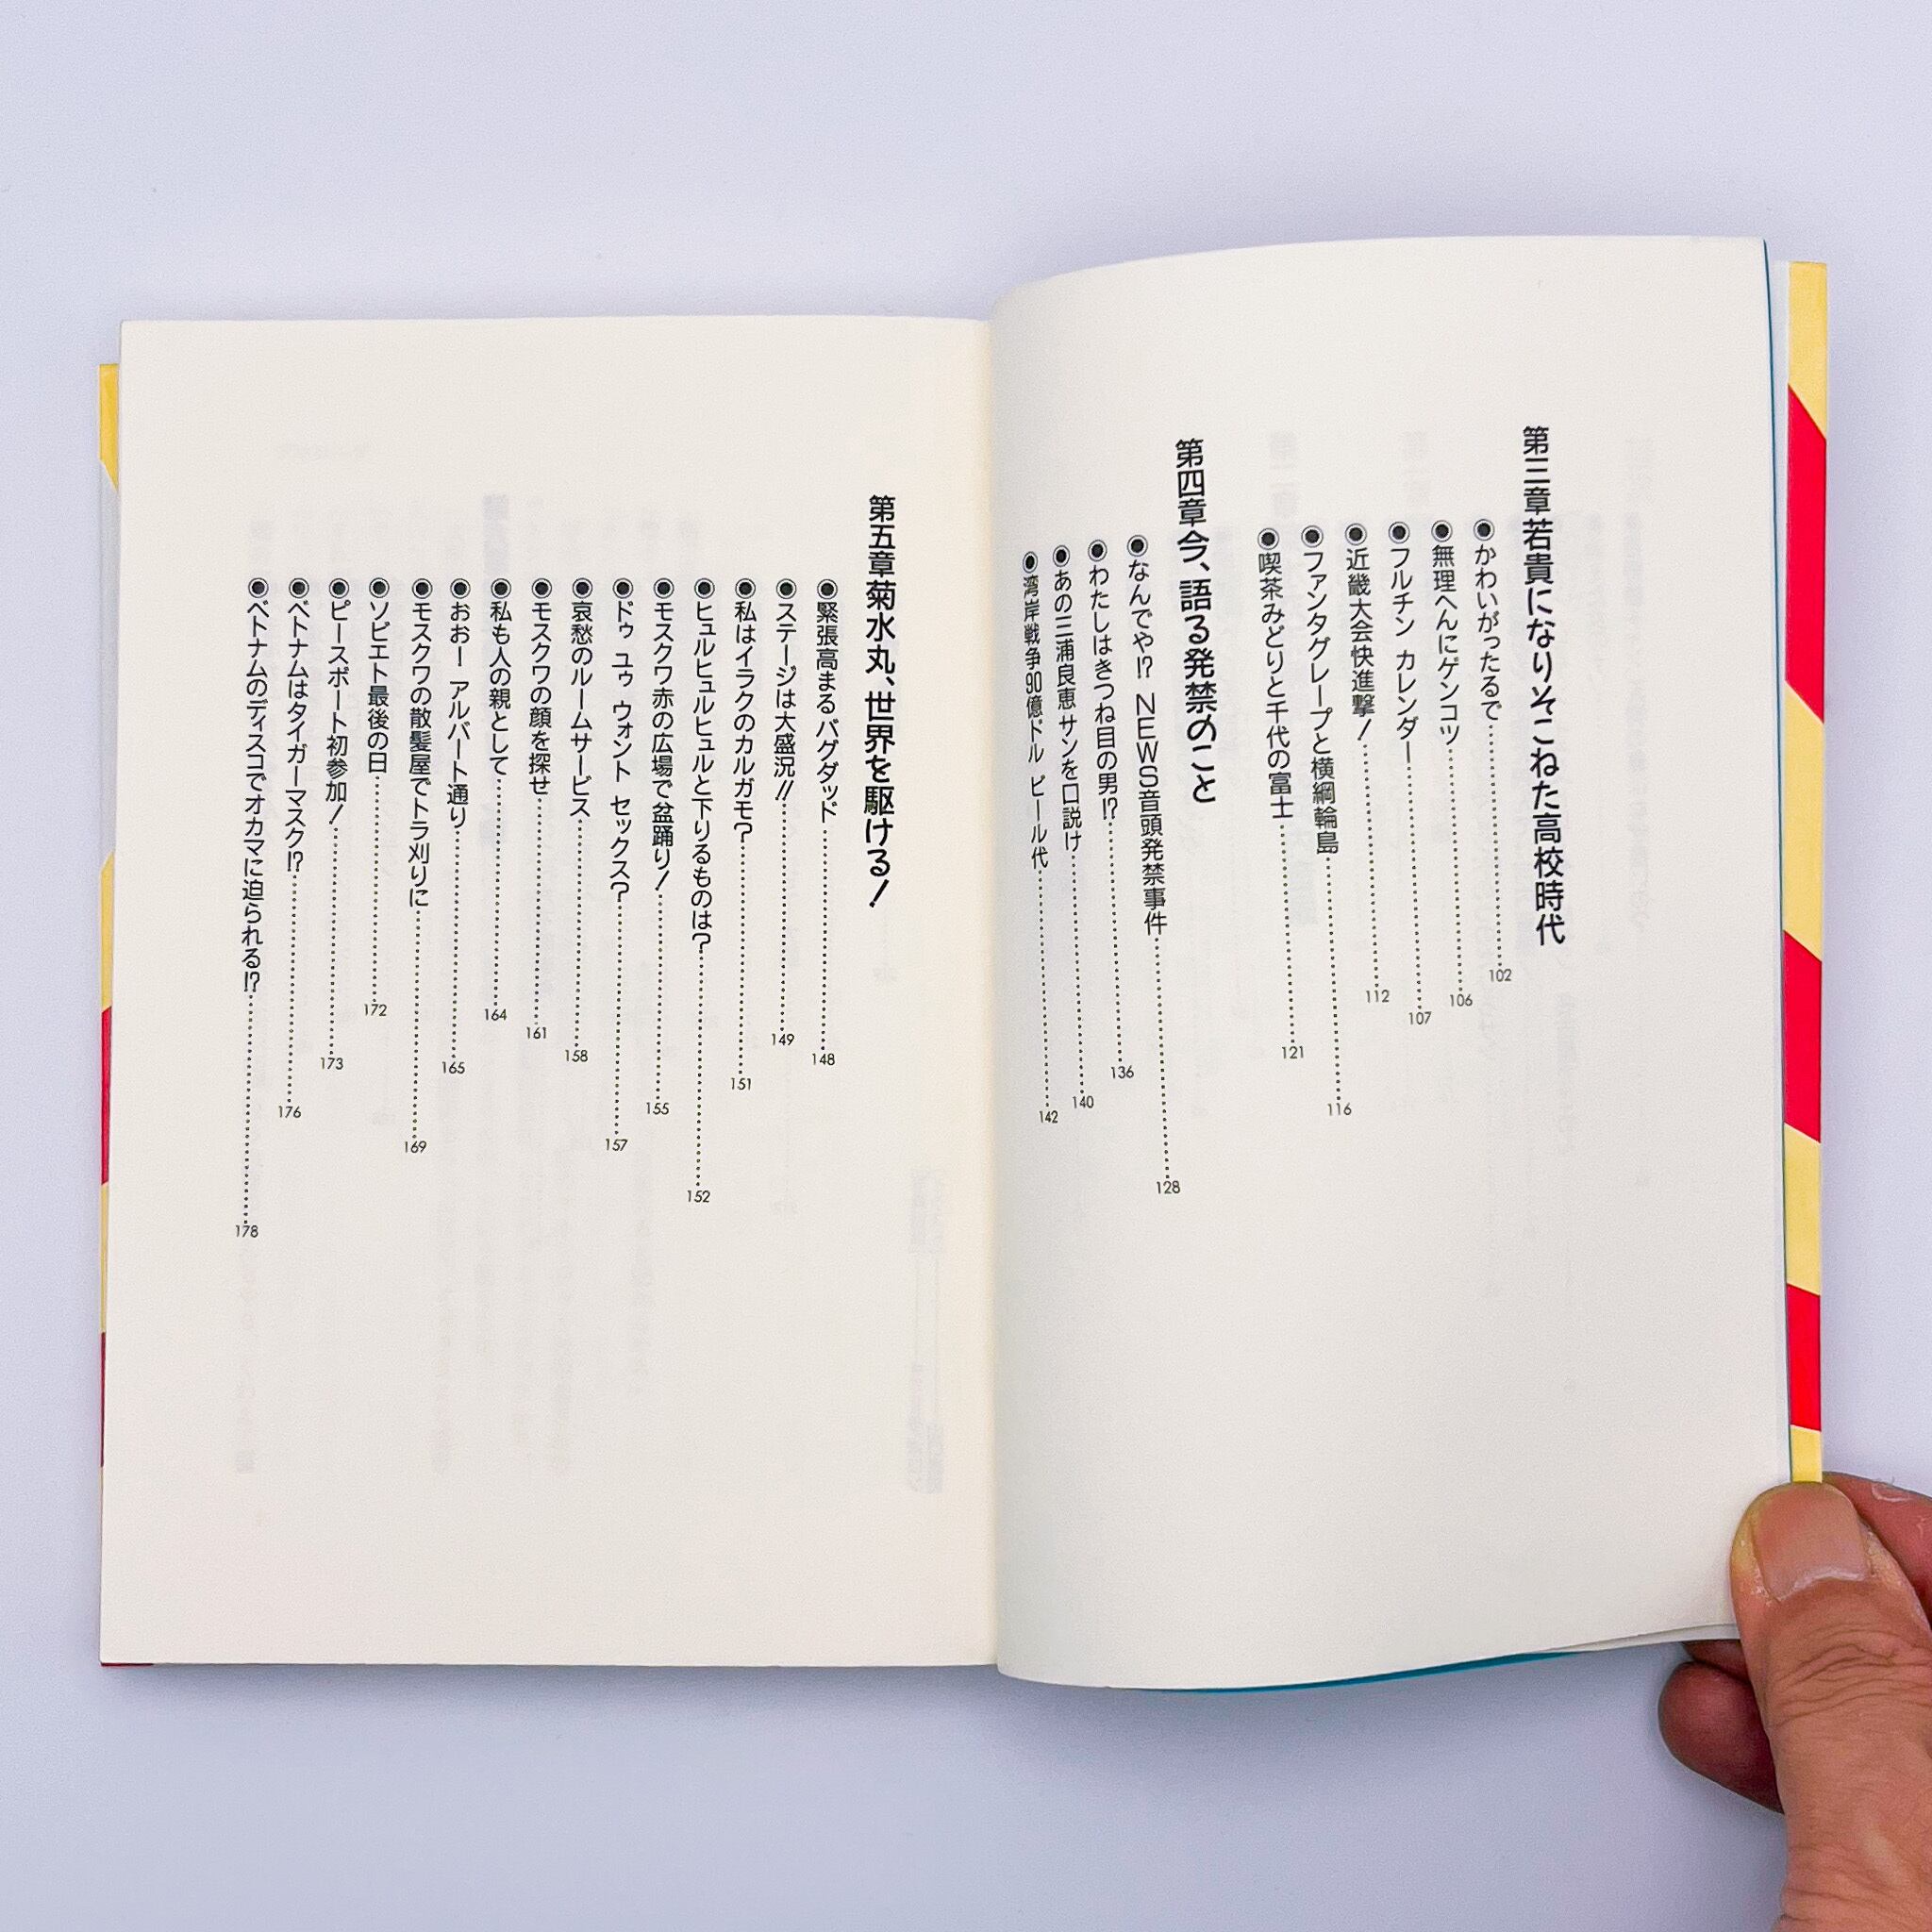 第三章若貴になりそこねた高校時代
◉かわいがったるで……102
◉無理へんにゲンコツ……106
◉フルチン カレンダー……107
◉近畿大会快進撃!……112
◉ファンタグレープと横綱輪島……116
◉喫茶みどりと千代の富士……121
第四章今、語る発禁のこと
◉なんでや!? NEWS音頭発禁事件……128
◉わたしはきつね目の男!?……136
◉あの三浦良恵サンを口説け……140
◉湾岸戦争90億ドル ビール代……142
第五章菊水丸、世界を駆ける!
◉緊張高まるバグダッド……148
◉ステージは大盛況!!……149
◉私はイラクのカルガモ?……151
◉ヒュルヒュルヒュルと下りるものは?……152
◉モスクワ赤の広場で盆踊り!……155
◉ドゥ ユゥ ウォント セックス?……157
◉哀愁のルームサービス……158
◉モスクワの顔を探せ……161
◉私も人の親として……164
◉おおー アルバート通り……165
◉モスクワの散髪屋でトラ刈りに……169
◉ソビエト最後の日……172
◉ピースボート初参加!……173
◉ベトナムはタイガーマスク!?……176
◉ベトナムのディスコでオカマに迫られる!?……178